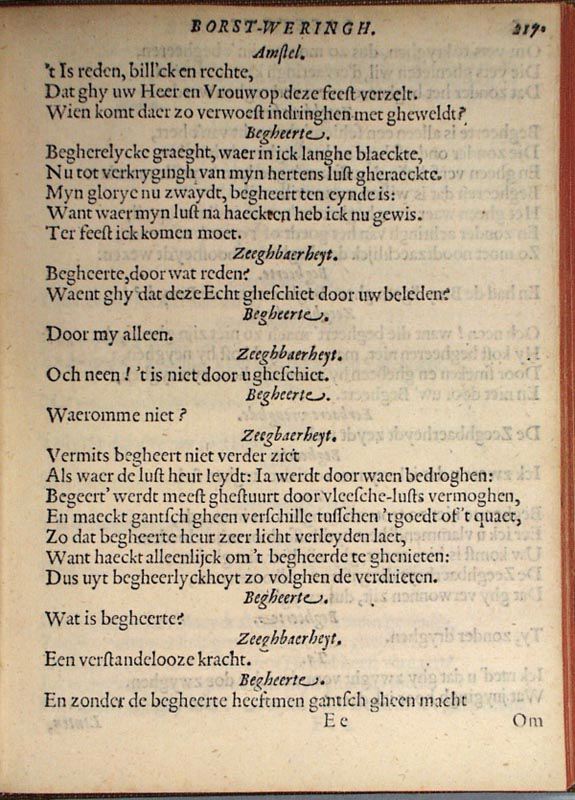 BORST-WERINGH. 217.
Amstel.
't Is reden, bill'ck en rechte,
Dat ghy uw Heer en Vrouw op deze feest verzelt.
Wien komt daer zo verwoest indringhen met gheweldt?
Begheerte.
Begherelycke graeght, waer in ick langhe blaeckte,
Nu tot verkrygingh van myn hertens lust gheraeckte.
Myn glorye nu zwaydt, begheert ten eynde is:
Want waer myn lust na haeckten heb ick nu gewis.
Ter feest ick komen moet.
Zeeghbaerheyt.
Begheerte, door wat reden?
Waent ghy dat deze Echt gheschiet door uw beleden?
Begheerte.
Door my alleen.
Zeeghbaerheyt.
Och neen! 't is niet door u gheschiet.
Begheerte.
Waeromme niet?
Zeeghbaerheyt.
Vermits begheert niet verder ziet
Als waer de lust heur leydt: Ia werdt door waen bedroghen:
Begeert' werdt meest ghestuurt door vleesche-lusts vermoghen,
En maeckt gantsch gheen verschille tusschen 't goedt of 't quaet,
Zo dat begheerte heur zeer licht verleyden laet,
Want haeckt alleenlijck om 't begheerde te ghenieten:
Dus uyt begheerlyckheyt zo volghen de verdrieten.
Begheerte.
Wat is begheerte?
Zeeghbaerheyt.
Een verstandelooze kracht.
Begheerte.
En zonder de begheerte heeft men gantsch gheen macht
Ee Om